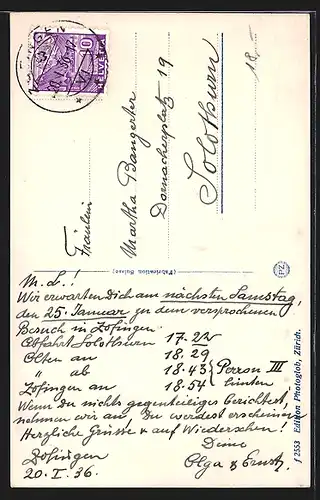 10
HELVETIA
18.-
Fräulein
Martha Bangerter
Dornacherplatz 19
Solothurn
(Fabrication Suisse)
M. L.!
Wir erwarten Dich am nächsten Samstag,
den 25. Januar zu dem versprochenen
Besuch in Zofingen.
Abfahrt Solothurn 17.22
Olten an 18.29
" ab 18.43 } Perron III
Zofingen an 18.54 hinten
Wenn Du nichts gegenteiliges berichtest,
nehmen wir an, Du werdest erscheinen.
Herzliche Grüsse & auf Wiedersehen!
Deine
Zofingen Olga & Ernst.
20. I. 36.
f 2553 Edition Photoglob, Zürich.
PZ